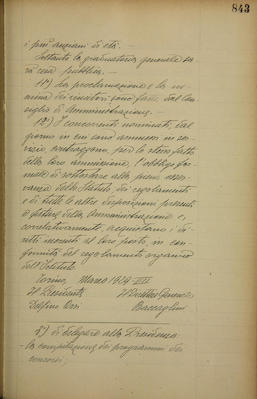 843
i più anziani di età.
Soltanto la graduatoria generale sa-
rà resa pubblica.
11°) La proclamazione e la no-
mina dei vincitori sono fatte dal Con-
siglio di Amministrazione.
12°) I concorrenti nominati, dal
giorno in cui sono ammessi in ser-
vizio contraggono, per lo stesso fatto
della loro ammissione, l'obbligo for-
male di sottostare alla piena osser-
vanza dello Statuto, dei regolamenti
e di tutte le altre disposizioni presenti
e future della Amministrazione e,
correlativamente, acquistano i di-
ritti inerenti al loro posto, in con-
formità del regolamento organico
dell'Istituto.
Torino, Marzo 1914
Il Presidente Il Direttore Generale
Delfino Orsi
di delegare alla Presidenza
la compilazione dei programmi dei
concorsi;